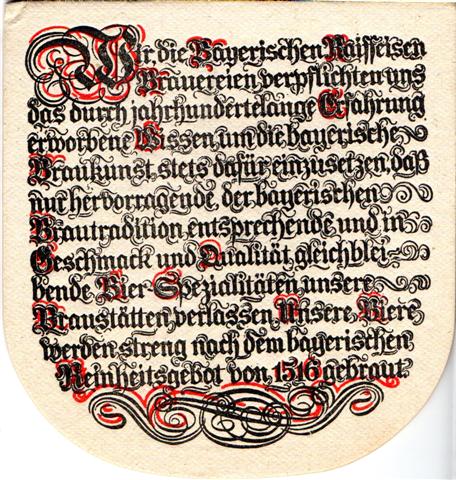 Wir, die Bayerischen Raiffeisen
Brauereien, verpflichten uns
das durch jahrhundertelange Erfahrung
erworbene Wissen, um die bayerische
Braukunst, stets dafür einzusetzen, daß
nur hervorragende, der bayerischen
Brautradition entsprechende und in
Geschmack und Qualität gleichblei-
bende Bier-Spezialitäten unsere
Braustätten verlassen. Unsere Biere
werden streng nach dem bayerischen
Reinheitsgebot von 1516 gebraut.